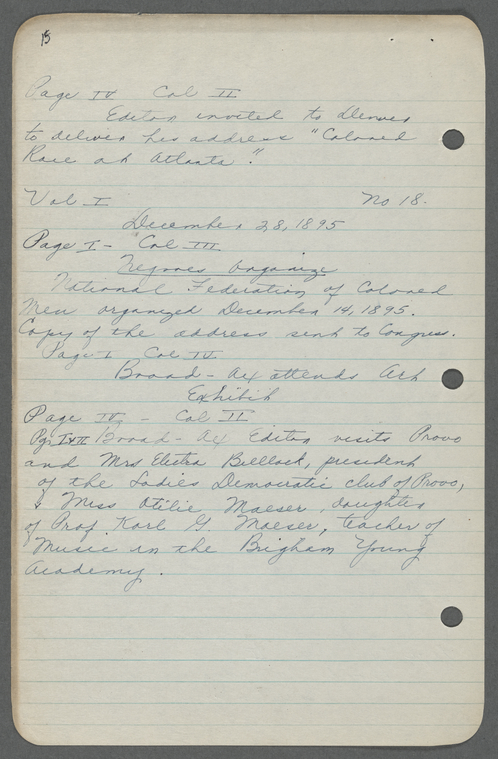 15
Page IV Col II
Editor invited to Denver
to deliver his address "Colored
Race at Atlanta."
Vol I No 18.
December 28, 1895
Page I - Col III
Negroes Organize
National Federation of Colored
Men organized December 14, 1895.
Copy of the address sent to Congress.
Page I Col IV
Broad-Ax attends Art
Exhibit
Page IV - Col II
Pg. I+II Broad-Ax Editor visits Provo
and Mrs Electra Bullock, president
of the Ladies Democratic club of Provo,
& Miss Otilie Maeser, daughter
of Prof. Karl G. Maeser, teacher of
Music in the Brigham Young
Academy.